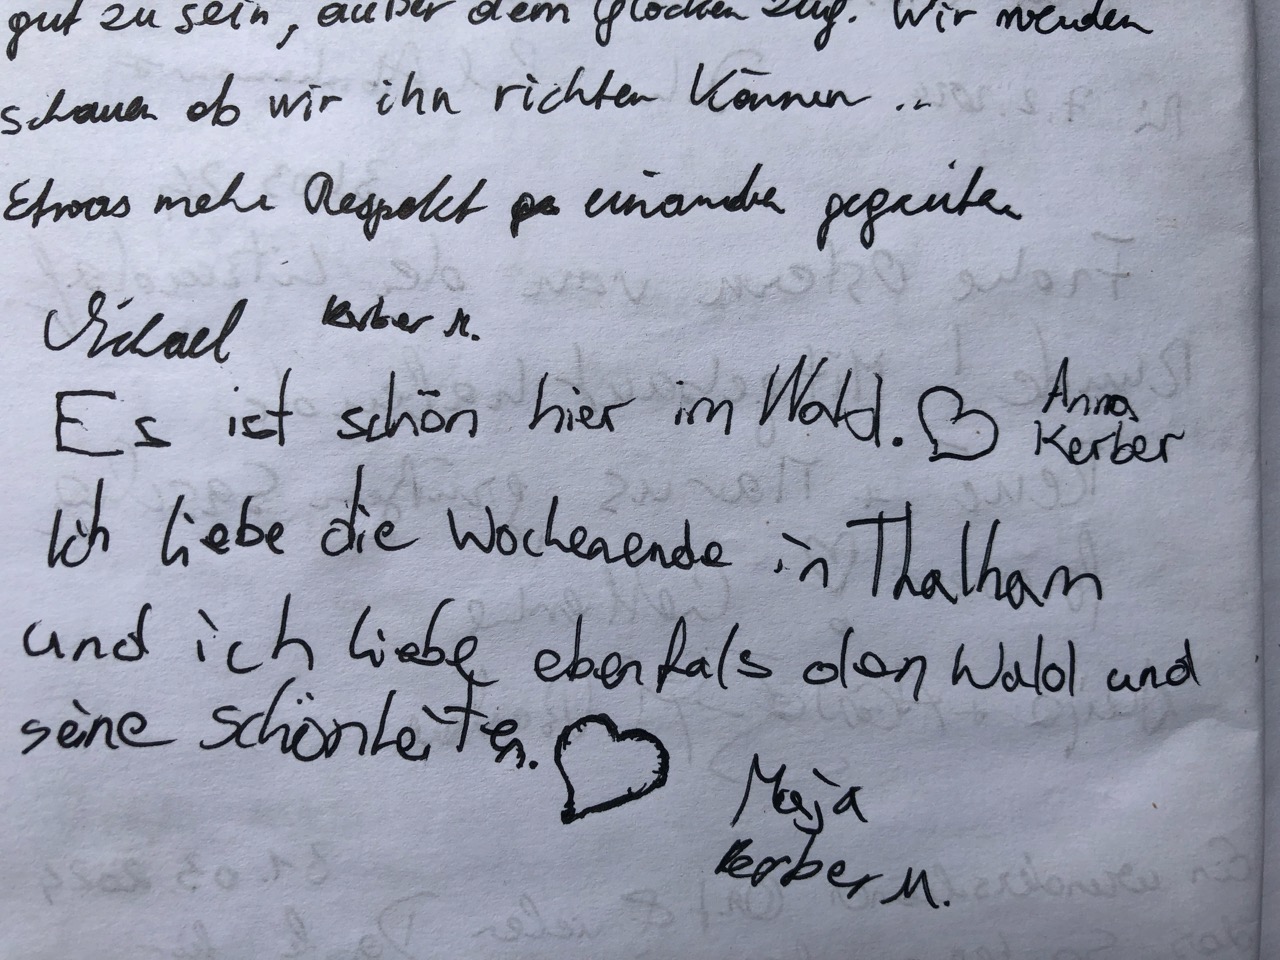 gut zu sein, außer dem Glockenzug. Wir werden
schauen ob wir ihn richten können ..
Etwas mehr Respekt einander gegenüber
Michael Kerber M.
Es ist schön hier im Wald. Anna
Kerber
Ich liebe die Wochenende in Thalham
und ich liebe ebenfals den Wald und
seine schönheiten.
Maja
Kerber M.